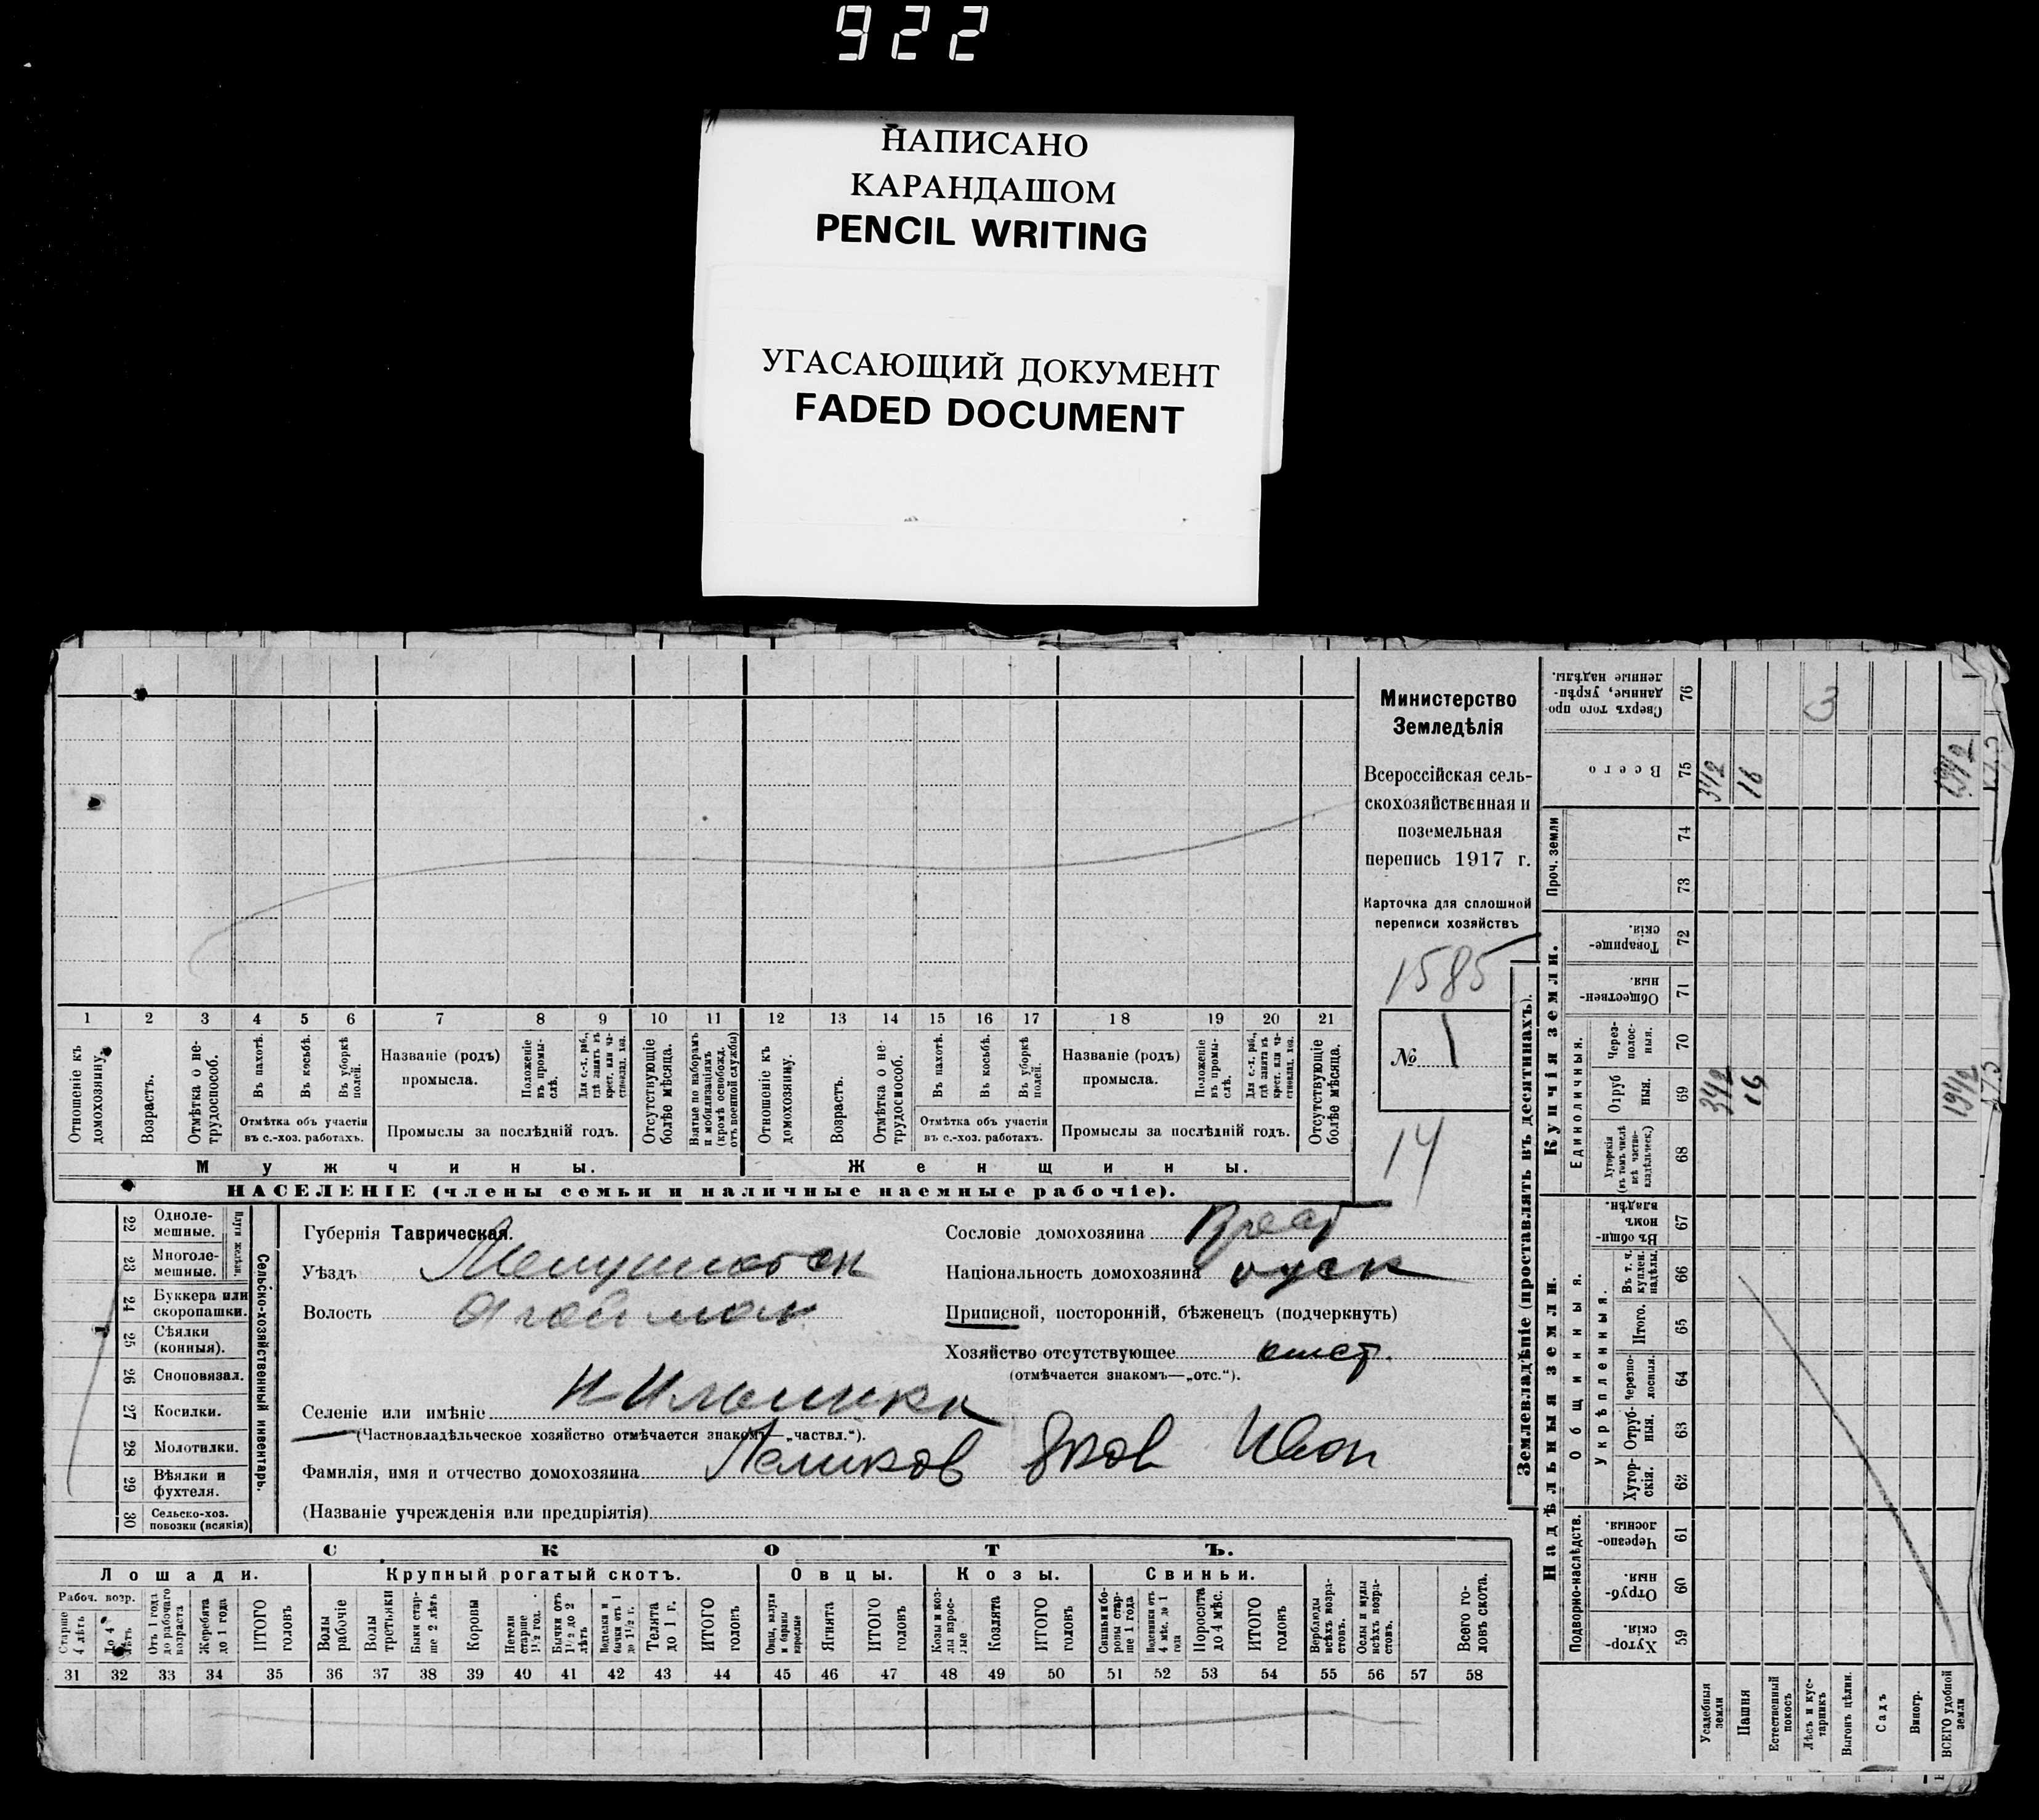 922
НАПИСАНО
КАРАНДАШОМ
PENCIL WRITING
УГАСАЮЩИЙ ДОКУМЕНТ
FADED DOCUMENT
Министерство
Земледѣлія
Всероссійская сель-
скохозяйственная и
поземельная
перепись 1917 г.
Карточка для сплошной
переписи хозяйствъ
1585
№ 1
14
1 2 3 4 5 6 7 8 9 10 11 12 13 14 15 16 17 18 19 20 21
Отношеніе къ домохозяину.
Возрастъ.
Отмѣтка о не-трудоспособ.
Въ пахотѣ.
Въ косьбѣ.
Въ уборкѣ полей.
Отмѣтка объ участіи
въ с.-хоз. работахъ.
Названіе (родъ)
промысла.
Положеніе въ промы-слѣ.
Для с.-х. раб., гдѣ занятъ въ крест. или ча-стновлад. хоз.
Промыслы за послѣдній годъ.
Отсутствующіе болѣе мѣсяца.
Взятые по наборамъ и мобилизаціямъ (кромѣ освобожд. отъ военной службы)
Отношеніе къ домохозяину.
Возрастъ.
Отмѣтка о не-трудоспособ.
Въ пахотѣ.
Въ косьбѣ.
Въ уборкѣ полей.
Отмѣтка объ участіи
въ с.-хоз. работахъ.
Названіе (родъ)
промысла.
Положеніе въ промы-слѣ.
Для с.-х. раб., гдѣ занята въ крест. или ча-стновлад. хоз.
Промыслы за послѣдній годъ.
Отсутствующіе болѣе мѣсяца.
Мужчины. Женщины.
НАСЕЛЕНІЕ (члены семьи и наличные наемные рабочіе).
22 Одноле-мешные.
23 Многоле-мешные.
Плуги желѣзн.
24 Буккера или скоропашки.
25 Сѣялки (конныя).
26 Сноповязал.
27 Косилки.
28 Молотилки.
29 Вѣялки и фухтеля.
30 Сельско-хоз. повозки (всякія)
Сельско-хозяйственный инвентарь.
Губернія Таврическая.
Уѣздъ
Волость Агайман
Селеніе или имѣніе
(Частновладѣльческое хозяйство отмѣчается знакомъ—„частвл.“).
Фамилія, имя и отчество домохозяина Яков Иван
(Названіе учрежденія или предпріятія)
Сословіе домохозяина
Національность домохозяина руск
Приписной, посторонній, бѣженецъ (подчеркнуть)
Хозяйство отсутствующее
(отмѣчается знакомъ—„отс.“).
СКОТЪ.
Лошади. Крупный рогатый скотъ. Овцы. Козы. Свиньи.
Рабоч. возр.
Старше 4 лѣтъ
До 4 лѣтъ
Отъ 1 года до рабочаго возраста
Жеребята до 1 года
ИТОГО головъ
Волы рабочіе
Волы третьяки
Быки стар-ше 2 лѣтъ
Коровы
Нетели старше 1½ год.
Бычки отъ 1½ до 2 лѣтъ
Подтелки и бычки отъ 1 до 1½ г.
Телята до 1 г.
ИТОГО головъ
Овцы, валухи и бараны взрослые
Ягнята
ИТОГО головъ
Козы и коз-лы взрос-лые
Козлята
ИТОГО головъ
Свиньи и бо-ровы стар-ше 1 года
Подсвинки отъ 4 мѣс. до 1 года
Поросята до 4 мѣс.
ИТОГО головъ
Верблюды всѣхъ возра-стовъ.
Ослы и мулы всѣхъ возра-стовъ.
Всего го-ловъ скота.
31 32 33 34 35 36 37 38 39 40 41 42 43 44 45 46 47 48 49 50 51 52 53 54 55 56 57 58
Землевладѣніе (проставлять въ десятинахъ).
Надѣльныя земли. Купчія земли. Проч. земли
Подворно-наслѣдств. Общинныя. Единоличныя.
Укрѣпленныя.
Хутор-скія. 59
Отруб-ныя. 60
Черезпо-лосныя. 61
Хутор-скія. 62
Отруб-ныя. 63
Черезпо-лосныя. 64
Итого. 65
Въ т. ч. куплен. надѣлы. 66
Въ общи-номъ владѣн. 67
Хуторскія (въ томъ числѣ всѣ частно-владѣльческ.) 68
Отруб-ныя. 69
Через-полос-ныя. 70
Обществен-ныя. 71
Товарище-скія. 72
73 74
Всего 75
Сверхъ того про-данные, укрѣп-ленные надѣлы. 76
Усадебныя земли 3 1/2 3 1/2
Пашня 16 16
Естественный покосъ
Лѣсъ и кус-тарникъ 3
Выгонъ цѣлин.
Садъ
Виногр.
ВСЕГО удобной земли 19 1/2 19 1/2